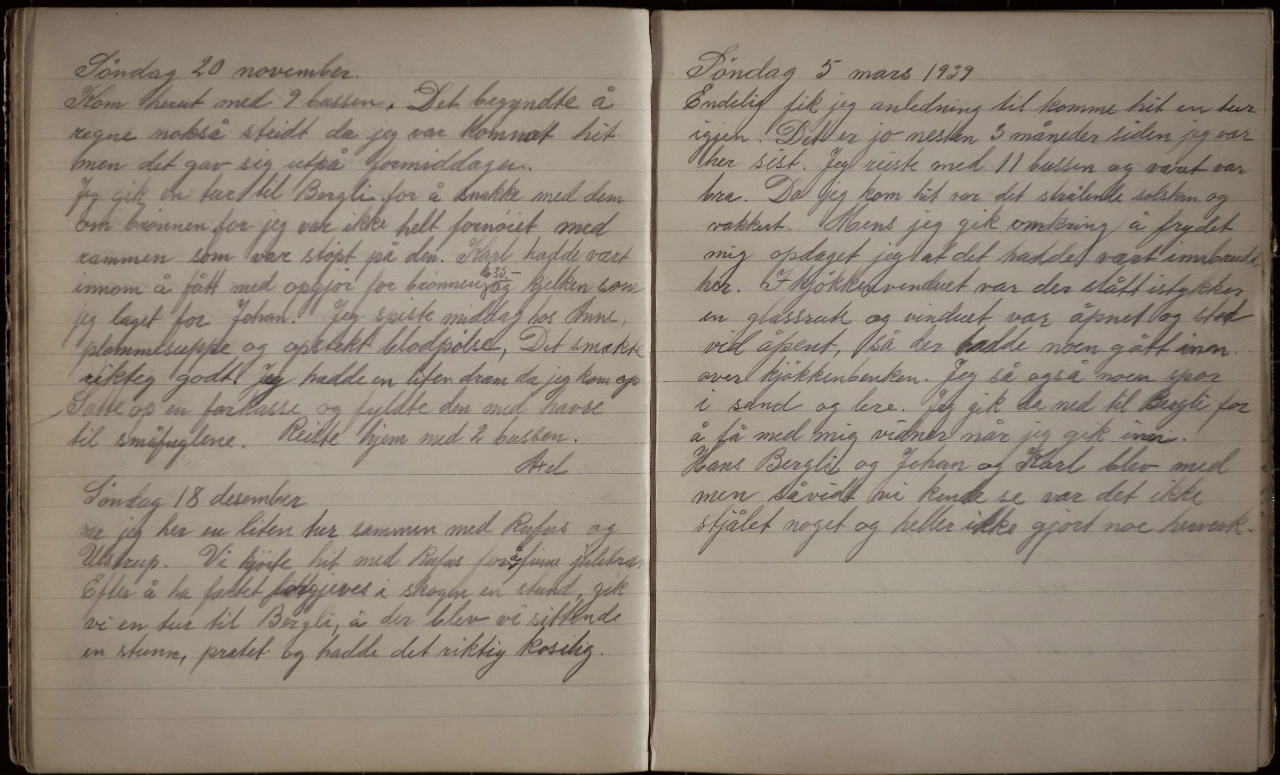 Søndag 20 november.
Kom herut med 9 bussen. Det begyndte å
regne nokså stridt da jeg var kommet hit
men det gav sig utpå formiddagen.
Jeg gik en tur til Bergli for å snakke med dem
om brønnen for jeg var ikke helt fornøiet med
rammen som var støpt på den. Karl hadde vært
innom å fått med opgjør for brønnen og kjelken som
35.-
jeg laget for Johan. Jeg spiste middag hos Anne,
plommesuppe og opstekt blodpølse, Det smakte
riktig godt. Jeg hadde en liten dram da jeg kom op
Satte op en forkasse og fyldte den med havre
til småfuglene. Reiste hjem med 2 bussen.
Axel
Søndag 18 desember
var jeg her en liten tur sammen med Rufus og
Ulstrup. Vi kjørte hit med Rufus for å finne juletræ.
Efter å ha fartet forgjeves i skogen en stund, gik
vi en tur til Bergli, å der blev vi sittende
en stunn, pratet og hadde det riktig koselig.
Søndag 5 mars 1939
Endelig fik jeg anledning til komme hit en tur
igjen. Det er jo nesten 3 måneder siden jeg var
her sist. Jeg reiste med 11 bussen og været var
bra. Da jeg kom hit var det strålende solskin og
vakkert. Mens jeg gik omkring å frydet
mig opdaget jeg at det hadde vært innbrudd
her. I kjøkkenvinduet var der slått istykker
en glassrute og vinduet var åpnet og sto
vid åpent, så der hadde noen gått inn
over kjøkkenbenken. Jeg så også noen spor
i sand og lere. Jeg gik da ned til Bergli for
å få med mig vidner når jeg gik inn.
Hans Bergli og Johan og Karl blev med
men såvidt vi kunde se var det ikke
stjålet noget og heller ikke gjort noe herverk.